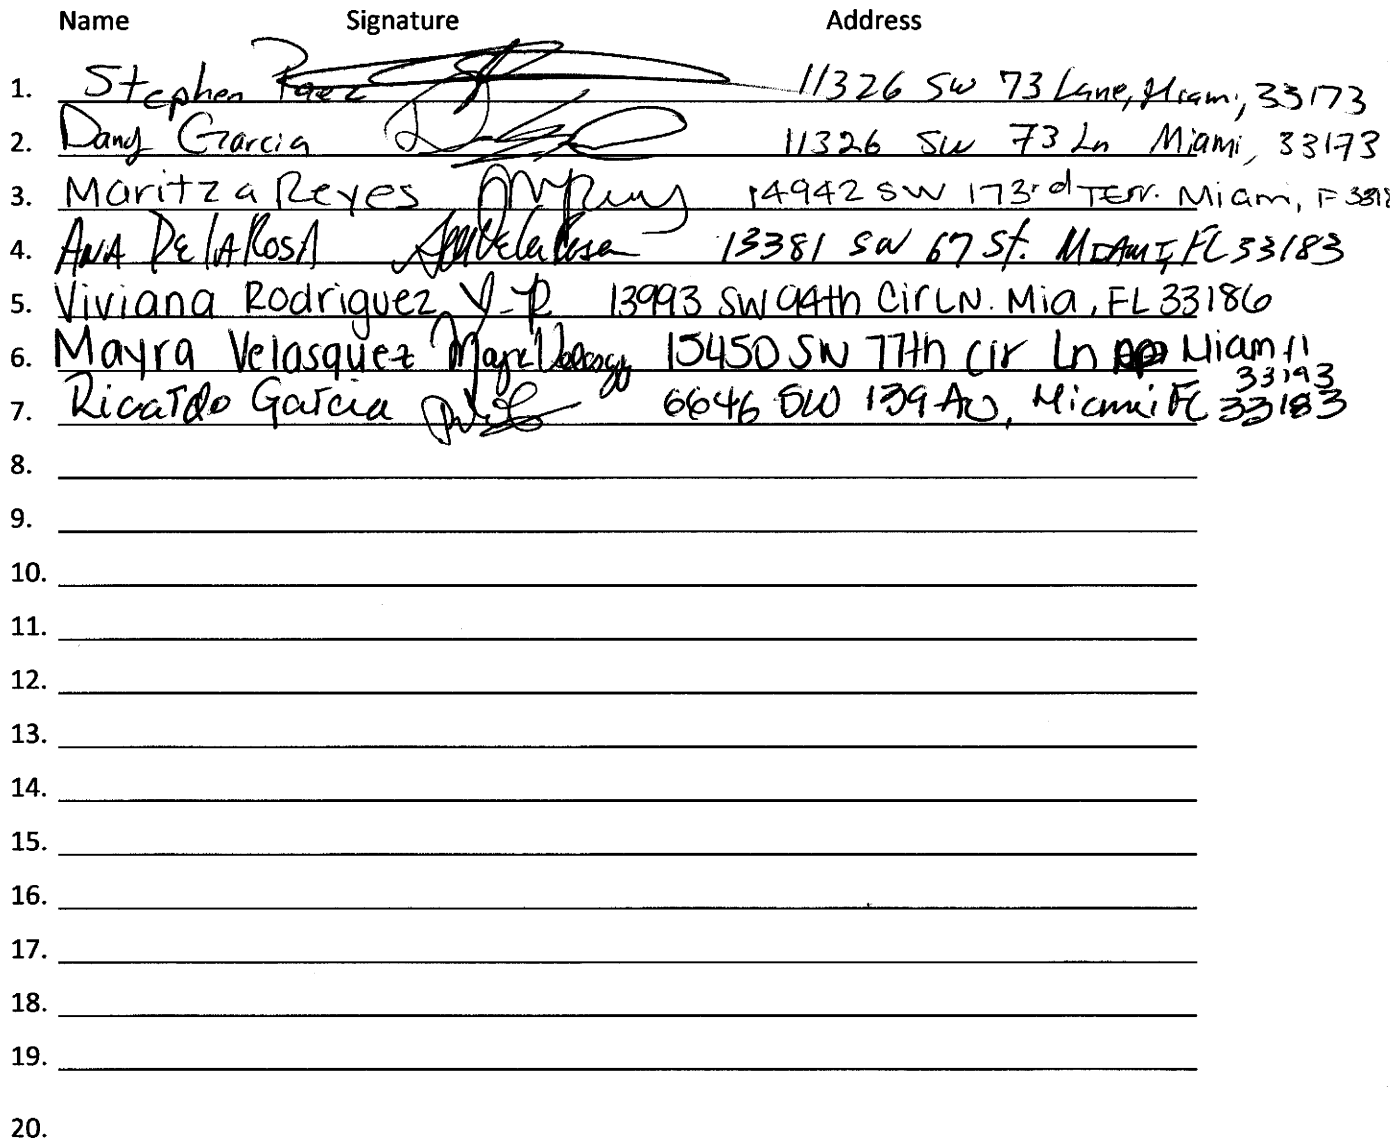 Name Signature Address
1. Stephen Paez 11326 SW 73 Lane, Miami, 33173
2. Dany Garcia 11326 SW 73 Ln Miami, 33173
3. Maritza Reyes 14942 SW 173rd Terr. Miami, F 3318
4. ANA De lA RosA Ana De La Rosa 13381 SW 67 St. MIAMI, FL 33183
5. Viviana Rodriguez V-R 13993 SW 94th Cir LN. Mia, FL 33186
6. Mayra Velasquez 15450 SW 77th Cir Ln Miami
33193
7. Ricardo Garcia 6646 SW 139 AV, Miami FL 33183
8.
9.
10.
11.
12.
13.
14.
15.
16.
17.
18.
19.
20.